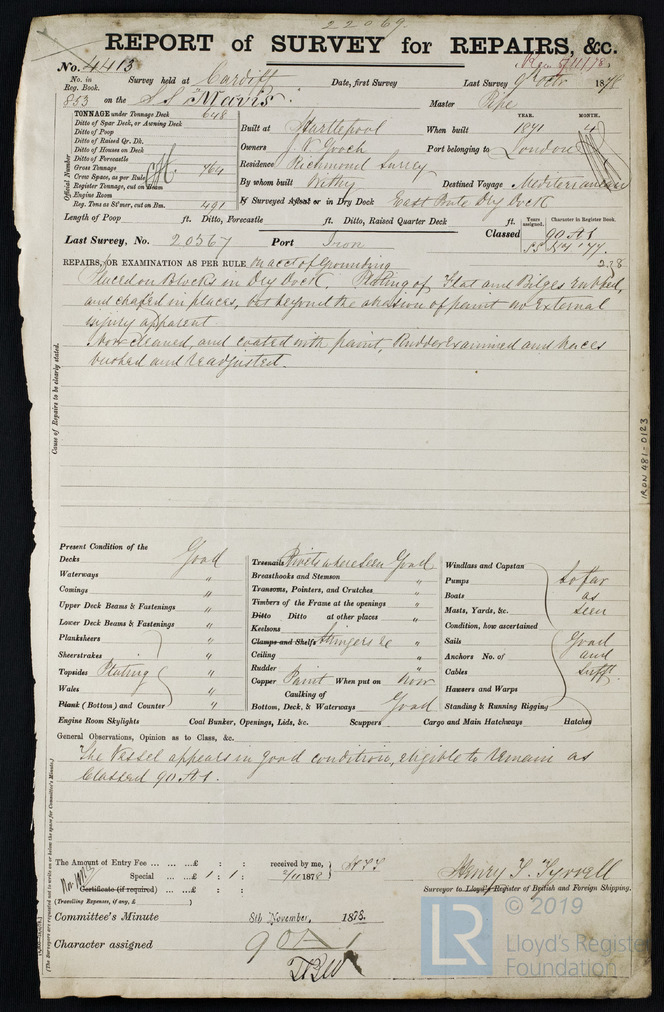 22069.
REPORT of SURVEY for REPAIRS, &c.
No. 4413
No. in Reg. Book. Survey held at Cardiff Date, first Survey Last Survey 9th Octr 1878
853 on the S.S. "Mavis". Master Pipe
TONNAGE under Tonnage Deck 648
Ditto of Spar Deck, or Awning Deck
Ditto of Poop
Ditto of Raised Qr. Dk.
Ditto of Houses on Deck
Ditto of Forecastle
Gross Tonnage 764
Crew Space, as per Rule
Register Tonnage, cut on Beam
Engine Room
Reg. Tons as St'mer, cut on Bm. 491
Official Number
Built at Hartlepool When built YEAR. 1871 MONTH. 4
Owners J. V. Gooch Port belonging to London
Residence Richmond Surrey
By whom built Withy Destined Voyage Mediterranean
If Surveyed Afloat or in Dry Dock East Bute Dry Dock
Length of Poop ft. Ditto, Forecastle ft. Ditto, Raised Quarter Deck ft.
Years assigned. Character in Register Book.
Classed 90 A1
Last Survey, No. 20567 Port Iron
REPAIRS, OR EXAMINATION AS PER RULE on acct of Grounding
Placed on Blocks in Dry Dock. Plating of Flat and Bilges rubbed,
and chafed in places, but beyond the abrasion of paint no External
injury apparent.
Now cleaned, and coated with paint, Rudder Examined and braces
bushed and readjusted.
Cause of Repairs to be clearly stated.
IRON 481-0123
Present Condition of the
Decks Good
Waterways "
Comings "
Upper Deck Beams & Fastenings "
Lower Deck Beams & Fastenings "
Planksheers "
Sheerstrakes "
Topsides Plating "
Wales "
Plank (Bottom) and Counter "
Engine Room Skylights Coal Bunker, Openings, Lids, &c. Scuppers Cargo and Main Hatchways Hatches
Treenails Rivets where seen Good
Breasthooks and Stemson "
Transoms, Pointers, and Crutches "
Timbers of the Frame at the openings "
Ditto Ditto at other places "
Keelsons "
Clamps and Shelfs Stringers &c "
Ceiling "
Rudder "
Copper Paint When put on Now
Caulking of
Bottom, Deck, & Waterways Good
Windlass and Capstan
Pumps So far
Boats as
Masts, Yards, &c. seen
Condition, how ascertained
Sails Good
Anchors No. of and
Cables Sufft.
Hawsers and Warps
Standing & Running Rigging
General Observations, Opinion as to Class, &c.
The Vessel appears in good condition, eligible to remain as
Classed 90 A1.
(The Surveyors are requested not to write on or below the space for Committee's Minute.)
The Amount of Entry Fee ... ... ...£ : : received by me,
Special ... ...£ 1 : 1 : 2/11 1878
Certificate (if required) ... £ : :
(Travelling Expenses, if any, £ )
Henry T. Tyrrell
Surveyor to Lloyd's Register of British and Foreign Shipping.
Committee's Minute 8th November, 1878.
Character assigned 90 A 1
© 2019
LR
Lloyd's Register
Foundation